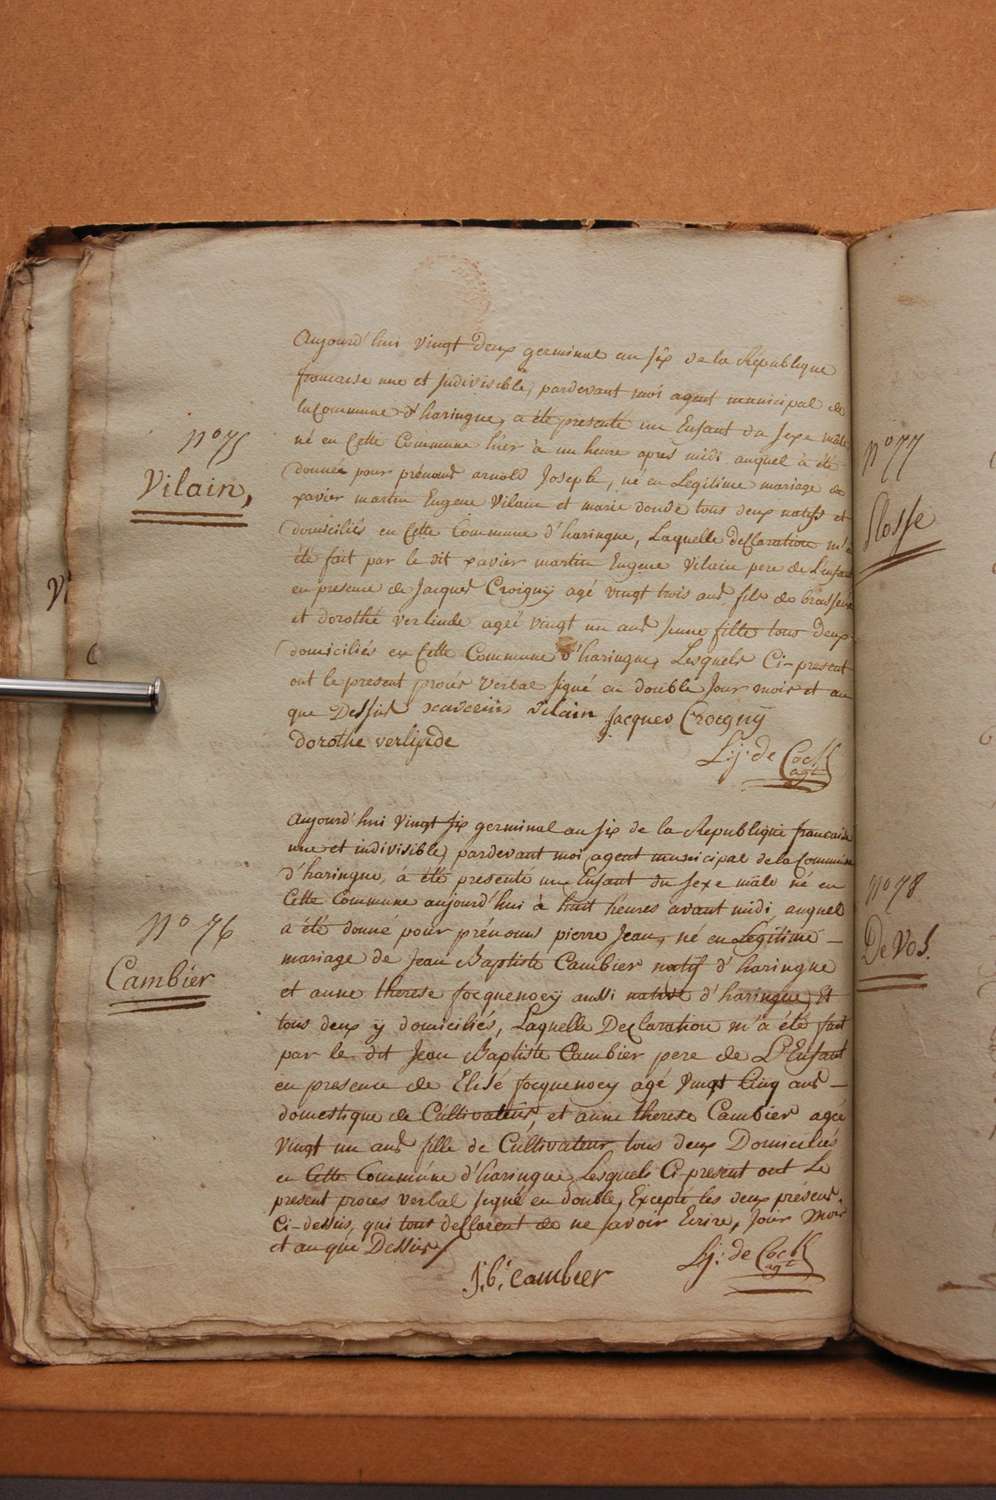 n.o 75
Vilain,
Aujourd'hui vingt deux germinal an six de la Republique
francaise une et Indivisible, pardevant moi agent municipal de
la Commune d'haringue, a été presenté un Enfant du sexe male
né en Cette Commune hier à un heure apres midi auquel à été
donnée pour prénoms arnold Joseph, né en Legitime mariage de
xavier martin Eugene Vilain et marie dondé tous deux natifs et
domiciliés en Cette Commune d'haringue, Laquelle declaration m'a
été fait par le dit xavier martin Eugene Vilain pere de L'enfant
en presence de Jacques Croigny agé vingt trois ans fils de brasseur
et dorothé verlinde ageé vingt un ans jeune fille tous deux
domiciliés en Cette Commune d'haringue, Lesquels Ci-present
ont le present procés verbal signé en double Jour mois et an
que Dessus vilain jacques Crocgnÿ
dorothe verlinde
L:j: de Cock
agt
n.o 76
Cambier
Aujourd'hui vingt six germinal an six de la Republique francaise
une et indivisible, pardevant moi agent municipal de la Commune
d'haringue, a été presenté un Enfant du sexe mâle né en
Cette Commune aujourd'hui à huit heures avant midi, auquel
a été donné pour prénoms pierre Jean, né en Legitime -
mariage de Jean Baptiste Cambier natif d'haringue
et anne therese focquenoeÿ aussi native d'haringue, Et
tous deux ÿ domiciliés, Laquelle Declaration m'a été fait
par le dit Jean Baptiste Cambier pere de L'Enfant
en presence de Elisé focquenoey agé vingt Cinq ans -
domestique de Cultivateur, et anne therese Cambier ageé
vingt un ans fille de Cultivateur tous deux Domiciliés
en Cette Commune d'haringue Lesquels Ci-present ont Le
present procès verbal signé en double, Excepté les deux présens
Ci-dessus, qui tous declarent de ne savoir Ecrire, Jour Mois
et an que Dessus /
J:b: cambier
L:j: de Cock
agt
n.o 77
Slosse
n.o 78
De Vos.